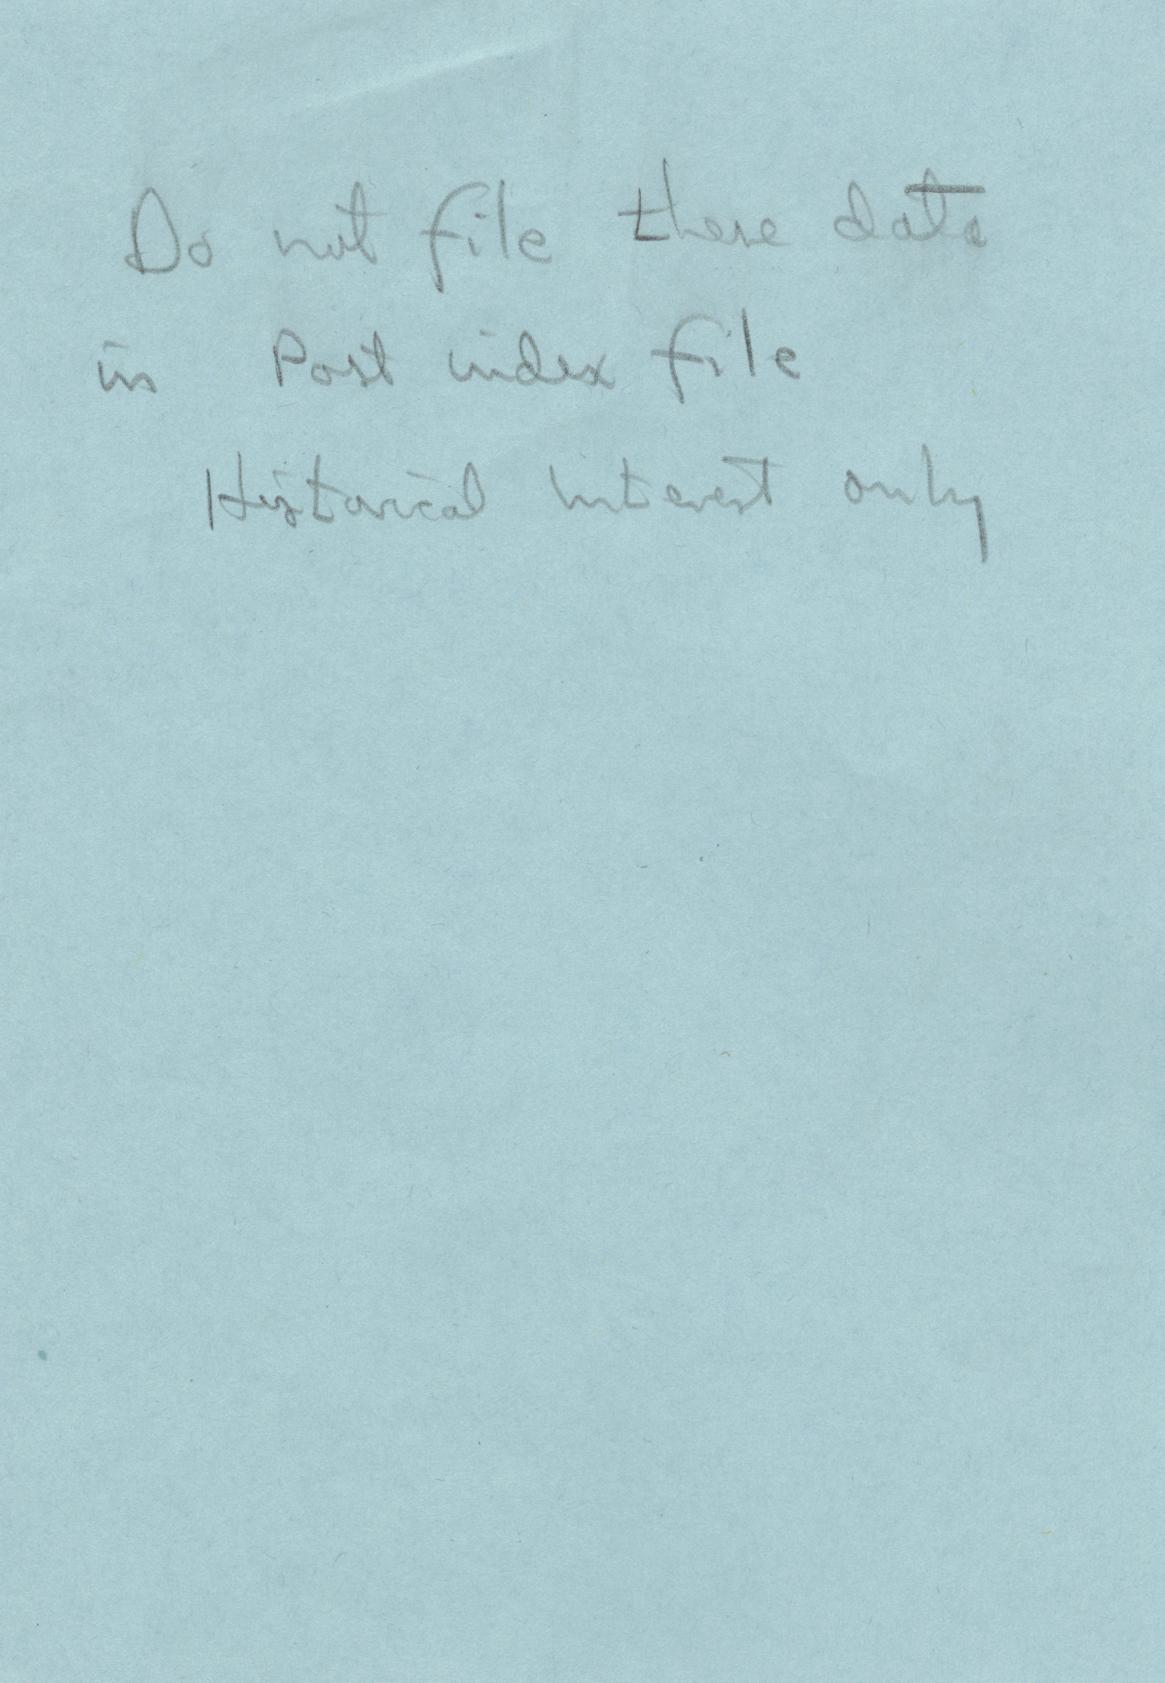 Do not file these data
in Post index file
Historical interest only